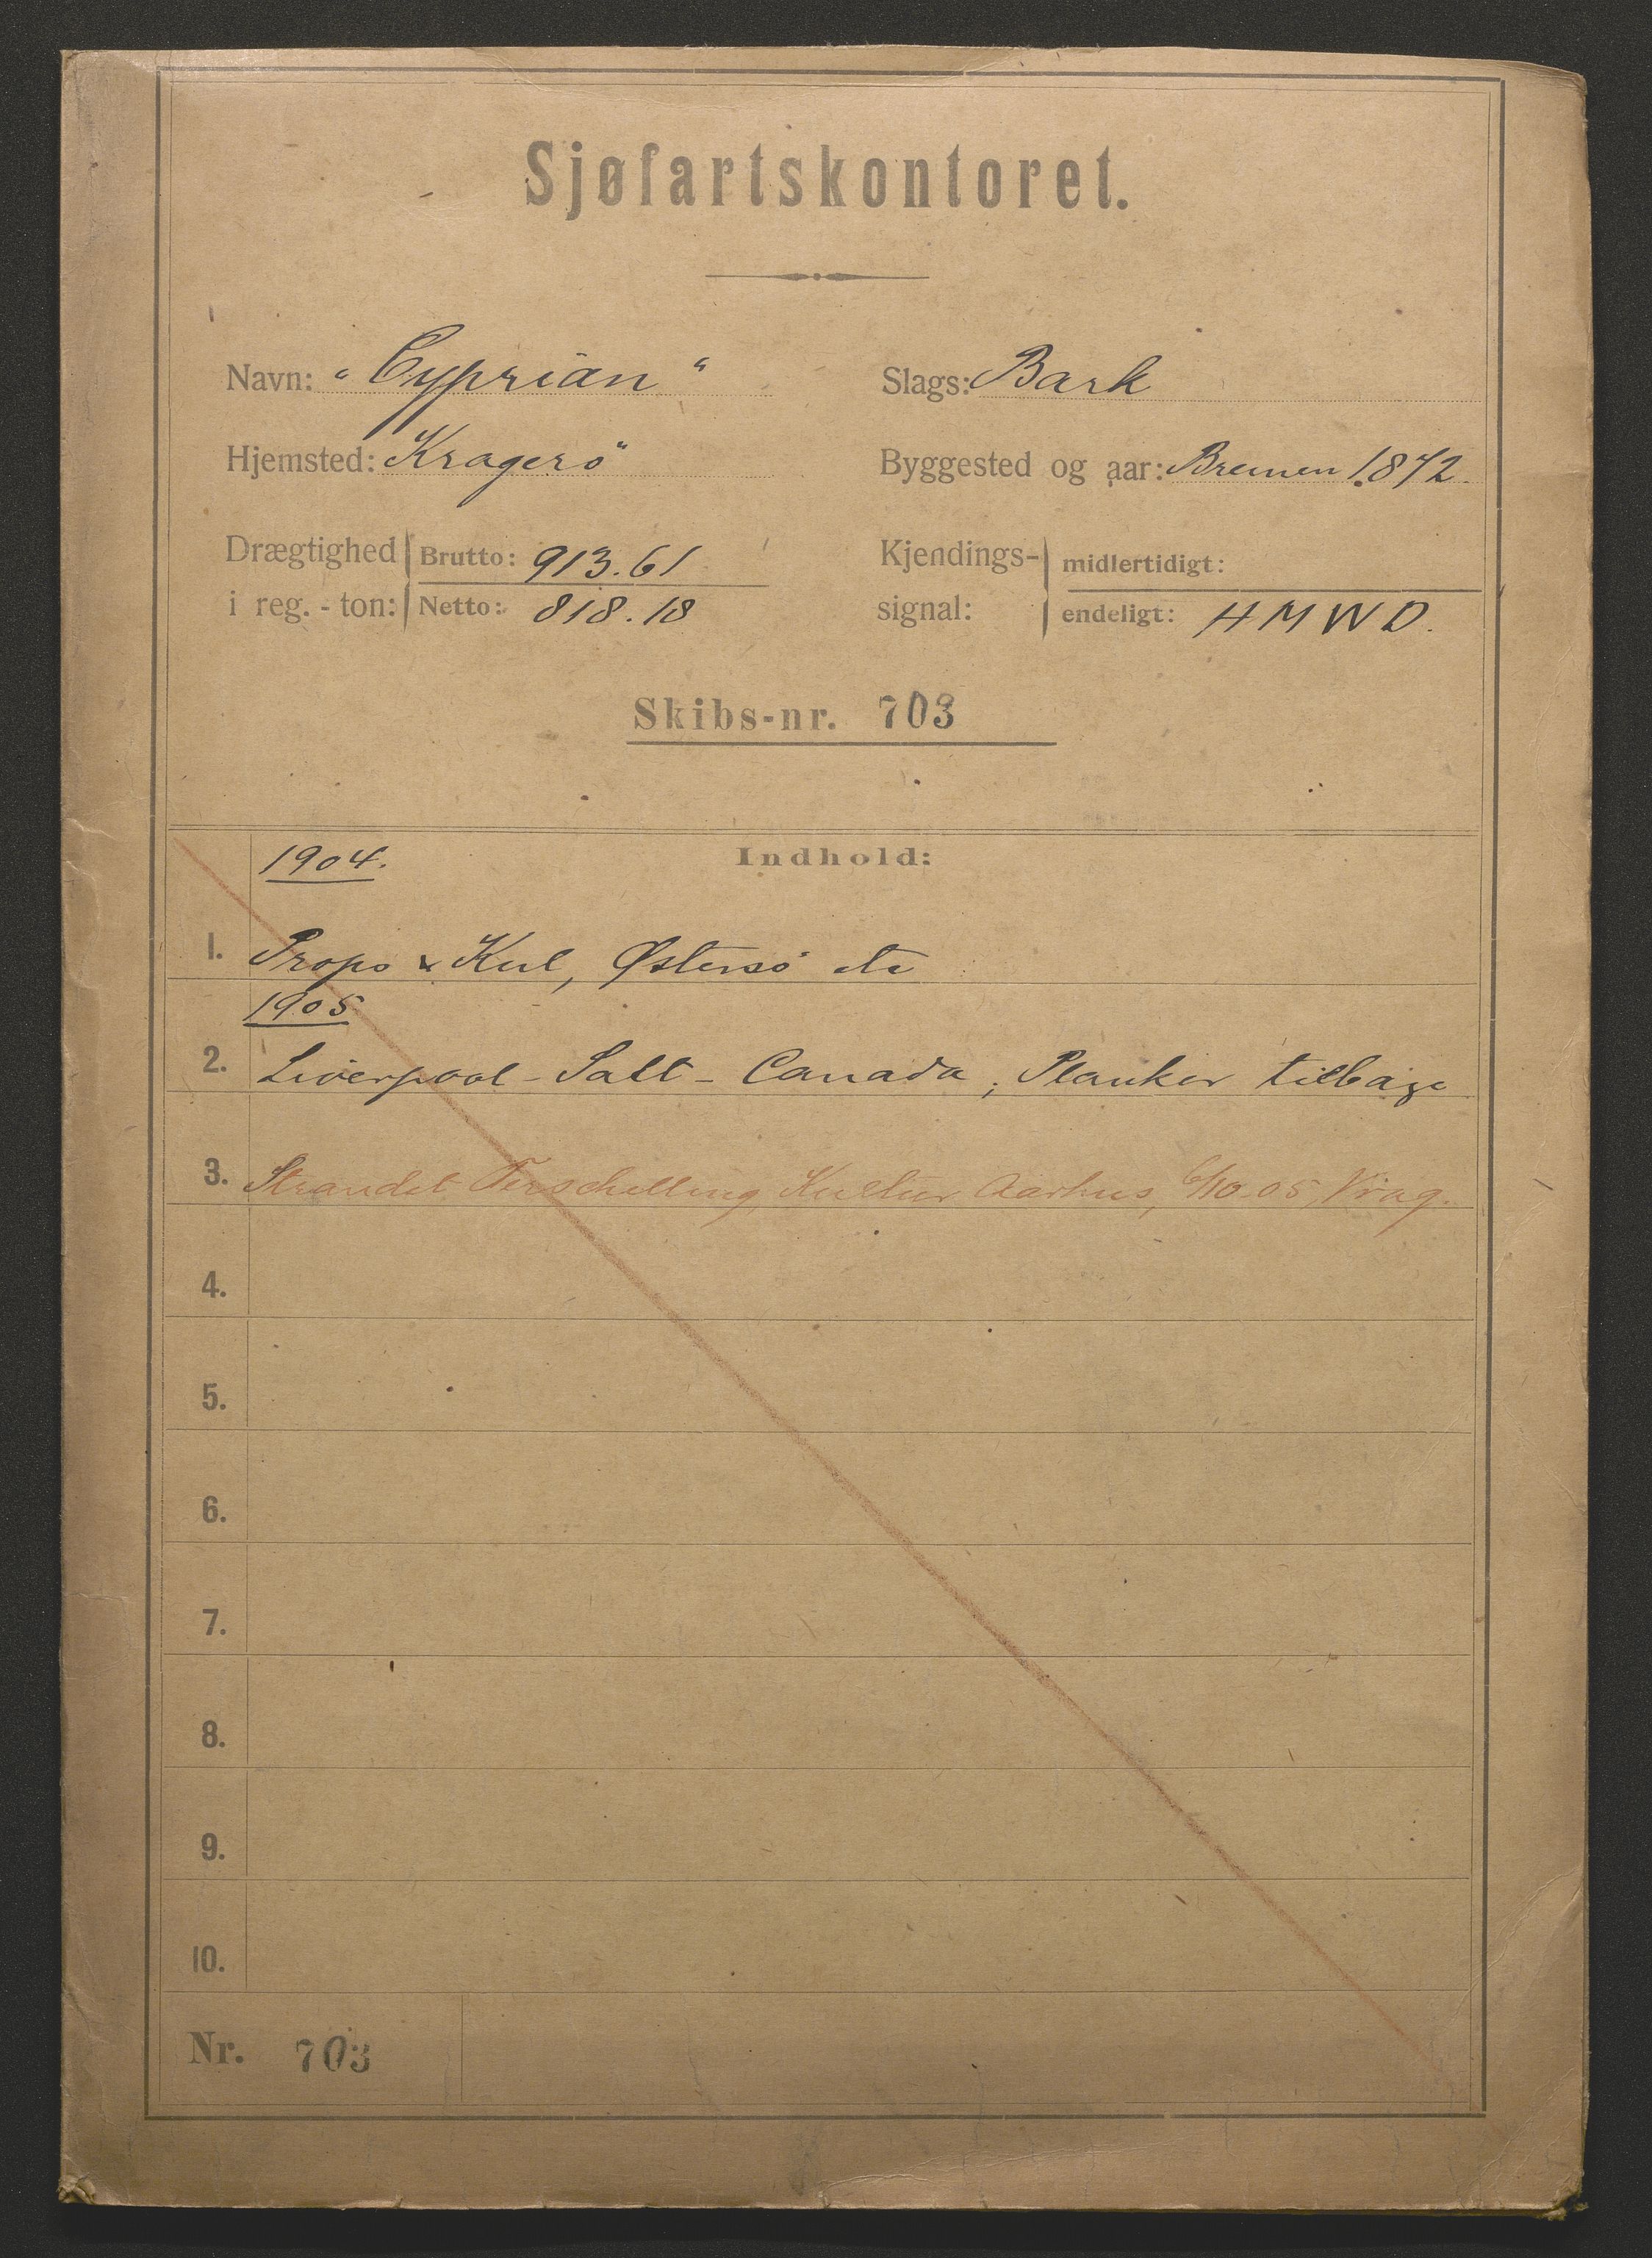 Sjøfartskontoret.
Navn: "Cyprian" Slags: Bark
Hjemsted: Kragerö Byggested og aar: Bremen 1872.
Drægtighed i reg.-ton: Brutto: 913.61 Kjendingssignal: midlertidigt:
Netto: 818.18 endeligt: HMWD.
Skibs-nr. 703
1904. Indhold:
1. Props & Kul, Østersö etc
1905
2. Liverpool - Salt - Canada; Planker tilbage
3. Strandet Terschelling, Aarhus, 6/10-05, Vrag.
4.
5.
6.
7.
8.
9.
10.
Nr. 703